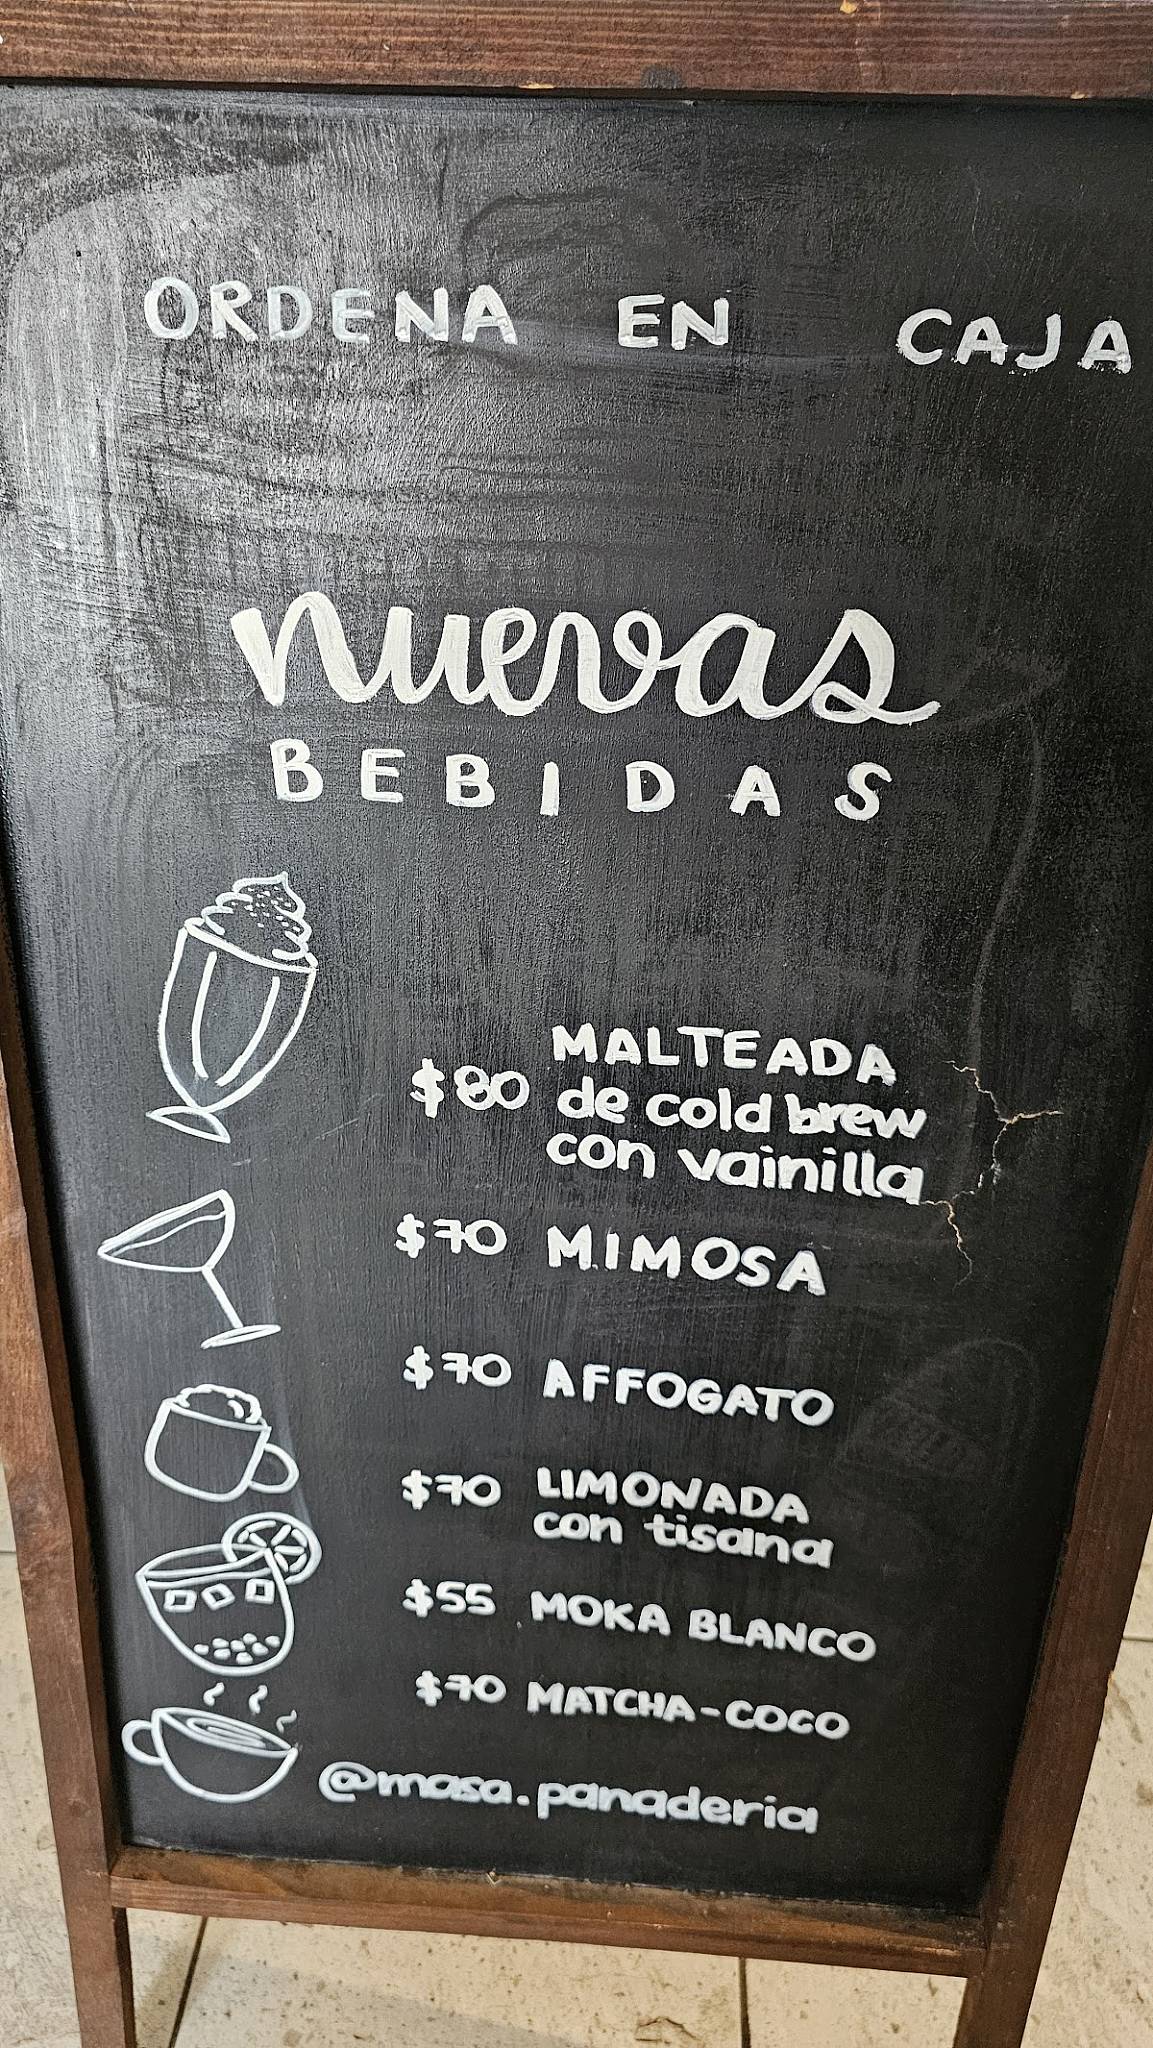 ORDENA EN CAJA
nuevas
BEBIDAS
MALTEADA
$80 de cold brew
con vainilla
$70 MIMOSA
$70 AFFOGATO
$70 LIMONADA
con tisana
$55 MOKA BLANCO
$70 MATCHA-COCO
@masa.panaderia